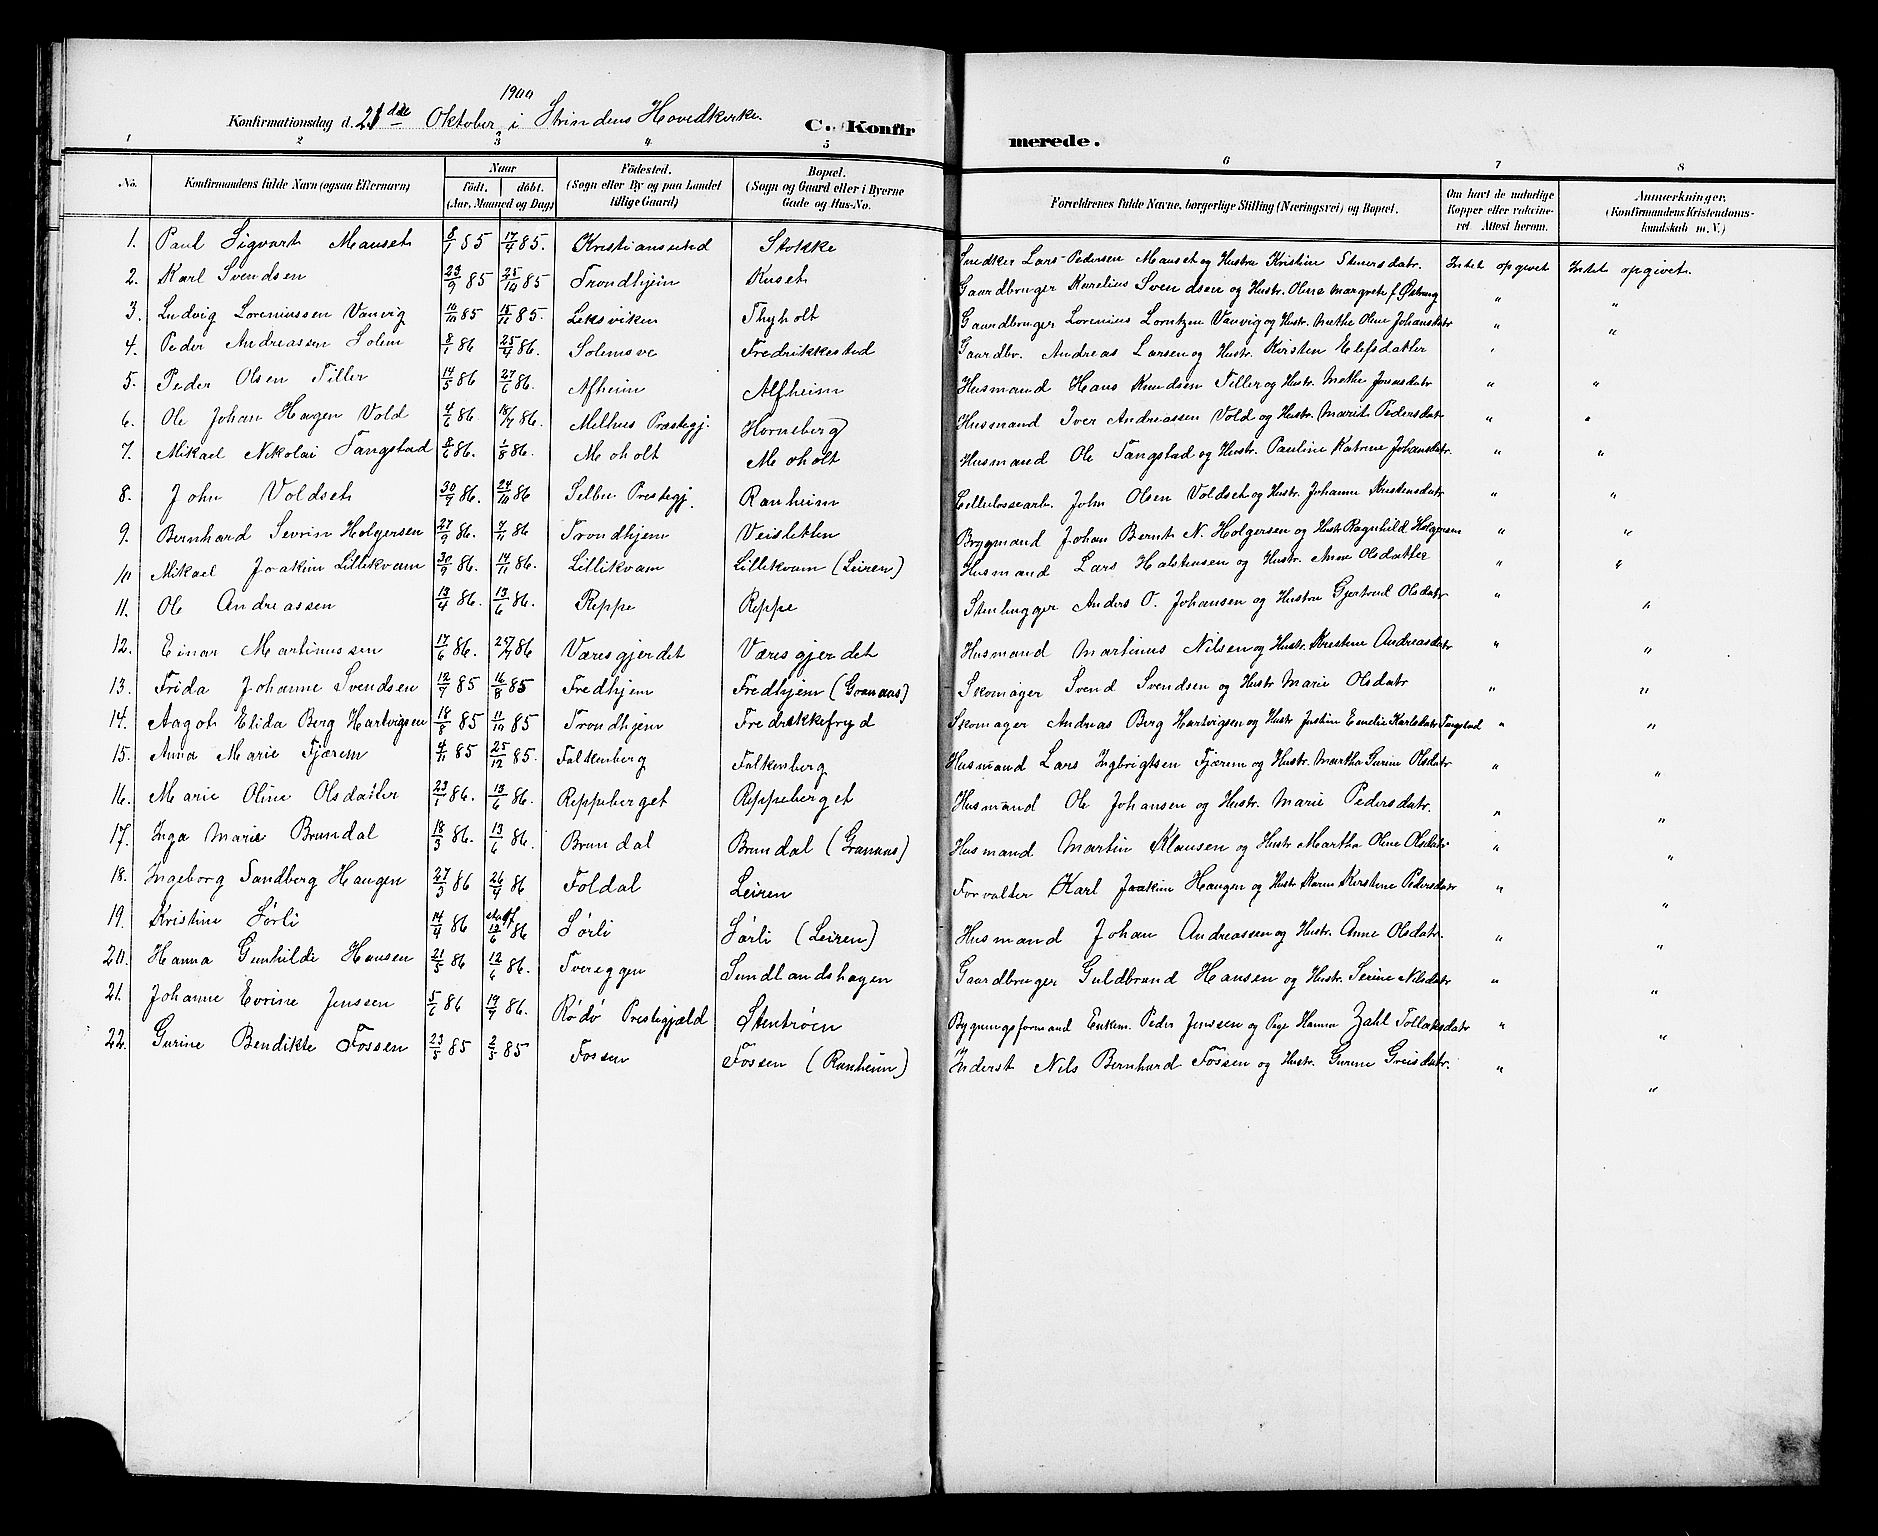 1900
Konfirmationsdag d. 21 de Oktober i Strindens Hovedkirke. C. Konfirmerede.
1 2 3 4 5 6 7 8
No. Konfirmandens fulde Navn (ogsaa Efternavn) Naar født. døbt. (Aar, Maaned og Dag) Fødested. (Sogn eller By og paa Landet tillige Gaard) Bopæl. (Sogn og Gaard eller i Byerne Gade og Hus-No. Forældrenes fulde Navne, borgerlige Stilling (Næringsvei) og Bopæl. Om havt de naturlige Kopper eller vaccineret. Attest herom. Anmærkninger. (Konfirmandens Kristendomskundskab m. V.)
1. Paul Sigvart Mauset 8/1 85 17/4 85. Kristiansund Stokke Snedker Lars Pedersen Mauset og Hustru Kristine Stenersdatr. Intet opgivet Intet opgivet.
2. Karl Svendsen 23/9 85 25/10 85 Trondhjem Kuset Gaardbruger Kurelius Svendsen og Hustr. Oline Margrete f. Østvang " "
3. Ludvig Loreniussen Vanvig 10/10 85 15/11 85. Leksviken Thyholt Gaardbruger Lorenius Lorntzen Vanvig og Hustr. Methe Oline Johansdatr " "
4. Peder Andreassen Solem 8/1 86 25/4 86. Solemsve Fredrikkestad Gaardbr. Andreas Larsen og Hustr. Kirsten Elefsdatter "
5. Peder Olsen Tiller 14/5 86 27/6 86. Afheim Alfheim Husmand Hans Knudsen Tiller og Hustr. Methe Jonasdatr " "
6. Ole Johan Haugen Vold 4/6 86. 18/7 86. Melhus Præstegj. Horneberg Husmand Iver Andreassen Vold og Hustr. Marit Pedersdatr " "
7. Mikael Nikolai Tangstad 8/6 86. 1/8 86. Moholt Moholt Husmand Ole Tangstad og Hustr. Pauline Katrine Johansdatr " "
8. John Voldset 30/9 86. 24/10 86 Selbu Prestegj. Ranheim Cellulossearb. John Olsen Voldset og Hustr. Johanna Kristensdatr " "
9. Bernhard Sevrin Holgersen 27/9 86. 7/11 86 Trondhjem Veisletten Brygmand Johan Bernt N. Holgersen og Hustr Ragnhild Holgersen " "
10 Mikael Joakim Lillikvam 30/9 86. 14/11 86. Lillikvam Lillikvam (Leiren) Husmand Lars Halstensen og Hustr. Anne Olsdatter " "
11. Ole Andreassen 13/4 86. 13/6 86. Reppe Reppe Stenhugger Anders O. Johansen og Hustru Gjertrud Olsdatr " "
12. Einar Martinussen 17/6 86. 25/7 86 Væresgjerdet Væresgjerdet Husmand Martinus Nilsen og Hustr. Kristine Andreasdatr " "
13. Frida Johanne Svendsen 12/7 85 16/8 85 Fredhjem Fredhjem (Granaas) Skomager Svend Svendsen og Hustr Marie Olsdatr " "
14. Aagot Elida Berg Hartvigsen 18/8 85 11/10 85 Trondhjem Fredrikkefryd Skomager Andreas Berg Hartvigsen og Hustr Justine Emelie Karlsdatr Tangstad " "
15. Anna Marie Fjærem 4/11 85 25/12 85. Falkenberg Falkenberg Husmand Lars Ingbrigtsen Fjærem og Hustr. Martha Gurine Olsdatr " "
16. Marie Oline Olsdatter 23/1 86. 13/6 86. Reppeberget Reppeberget Husmand Ole Johansen og Hustr. Marie Pedersdatr. " "
17. Inga Marie Brundal 18/3 86. 13/6 86. Brundal Brundal (Granaas) Husmand Martin Klausen og Hustr Martha Oline Olsdatr " "
18. Ingeborg Sandberg Haugen 27/3 86 26/4 86 Foldal Leiren Forvalter Karl Joakim Haugen og Hustr Karen Kirstine Pedersdatr " "
19. Kristine Sørli 14/4 86 12/6 86 Sørli Sørli (Leiren) Husmand Johan Andreassen og Hustr. Anne Olsdatr. " "
20. Hanna Gunhilde Hansen 21/5 86 12/6 86. Tvereggen Sundlandshagen Gaardbruger Guldbrand Hansen og Hustr. Serine Nilsdatr " "
21. Johanne Evrine Jenssen 5/6 86 19/9 86. Rødø Prestegjæld Stentrøen Bygningsformand Enkem. Peder Jenssen og Pige Hanna Zahl Tollaksdatr " "
22. Gurine Bendikte Fossen 23/3 85 2/5 85 Fossen Fossen (Ranheim) Inderst Nils Bernhard Fossen og Hustr. Gurine Greisdatr. " "